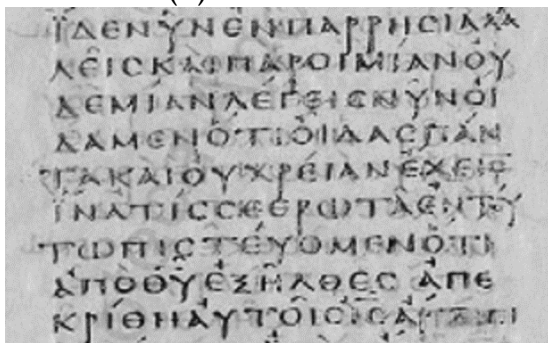 ΪΔΕΝΥΝΕΝΠΑΡΡΗϹΙΑΛΑ
ΛΕΙϹΚΑΙΠΑΡΟΙΜΙΑΝΟΥ
ΔΕΜΙΑΝΛΕΓΕΙϹΝΥΝΟΙ
ΔΑΜΕΝΟΤΙΟΙΔΑϹΠΑΝ
ΤΑΚΑΙΟΥΧΡΕΙΑΝΕΧΕΙϹ
ΪΝΑΤΙϹϹΕΕΡΩΤΑΕΝΤΟΥ
ΤΩΠΙϹΤΕΥΟΜΕΝΟΤΙ
ΑΠΟΘΥΕΞΗΛΘΕϹ ΑΠΕ
ΚΡΙΘΗΑΥΤΟΙϹΙϹΑΡΤΙ